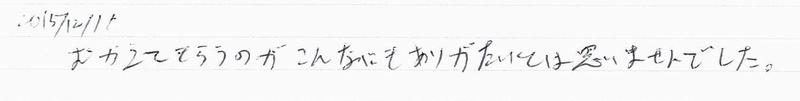 2015/12/11
むかえてもらうのが こんなにも ありがたいとは思いませんでした。